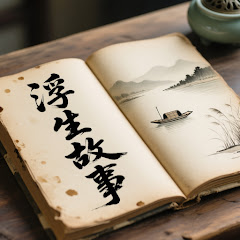 浮生故事